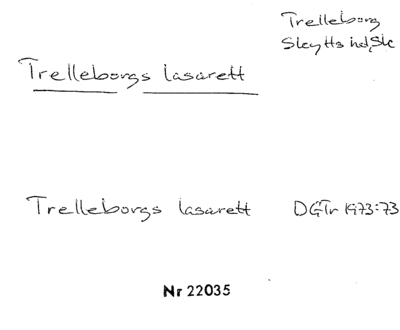 Trelleborg
Skytts hd, Sk
Trelleborgs lasarett
Trelleborgs lasarett DGTr 1973:73
Nr 22035